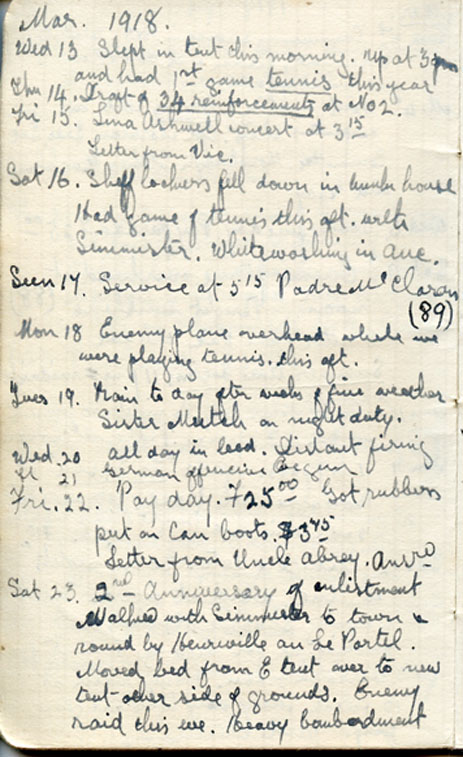 Mar. 1918.
Wed 13. Slept in tent this morning. up at 3 pm
and had 1st game tennis this year
Thu 14. Draft of 34 reinforcements at No 2.
Fri 15. Lena Ashwell concert at 3 15
Letter from Vic.
Sat 16. Shelf lockers fell down in bunk house
Had game of tennis this aft. with
Simmister. Whitewashing in Ave.
Sun 17. Service at 5 15 Padre McClaran
(89)
Mon 18 Enemy plane overhead while we
were playing tennis. this aft.
Tues 19. Rain to day after weeks of fine weather
Sister Mutch on night duty.
Wed. 20 all day in bed. Distant firing
21 German offencive begun
Fri. 22. Pay day. F25 00 Got rubbers
put on Can boots. $3 45
Letter from Uncle Abrey. Answd
Sat 23. 2nd Anniversary of enlistment
Walked with Simmister to town &
round by Henriville an Le Portel.
Moved bed from E tent over to new
tent other side of grounds. Enemy
raid this eve. Heavy bombardment